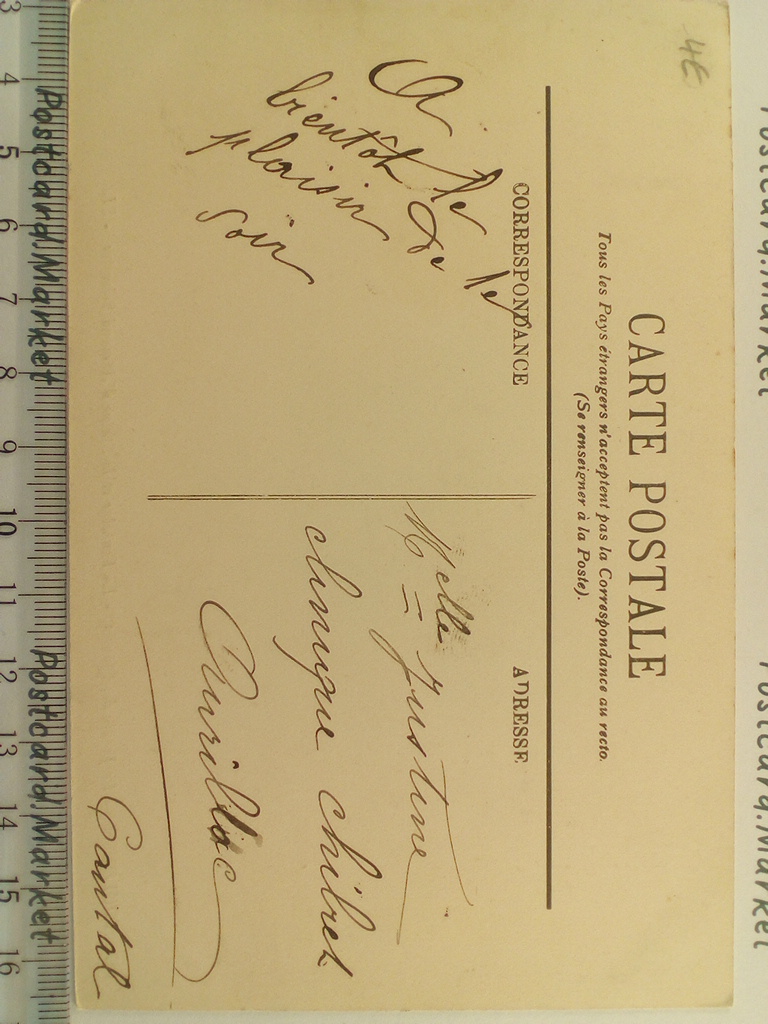 4€
CARTE POSTALE
Tous les Pays étrangers n'acceptent pas la Correspondance au recto.
(Se renseigner à la Poste).
CORRESPONDANCE
ADRESSE
A
bientôt le
plaisir de le
soir
Melle Justine
clinique chibret
Aurillac
Cantal
3 4 5 6 7 8 9 10 11 12 13 14 15 16
Postcard.Market
Postcard.Market
Postcard.Market
Postcard.Market